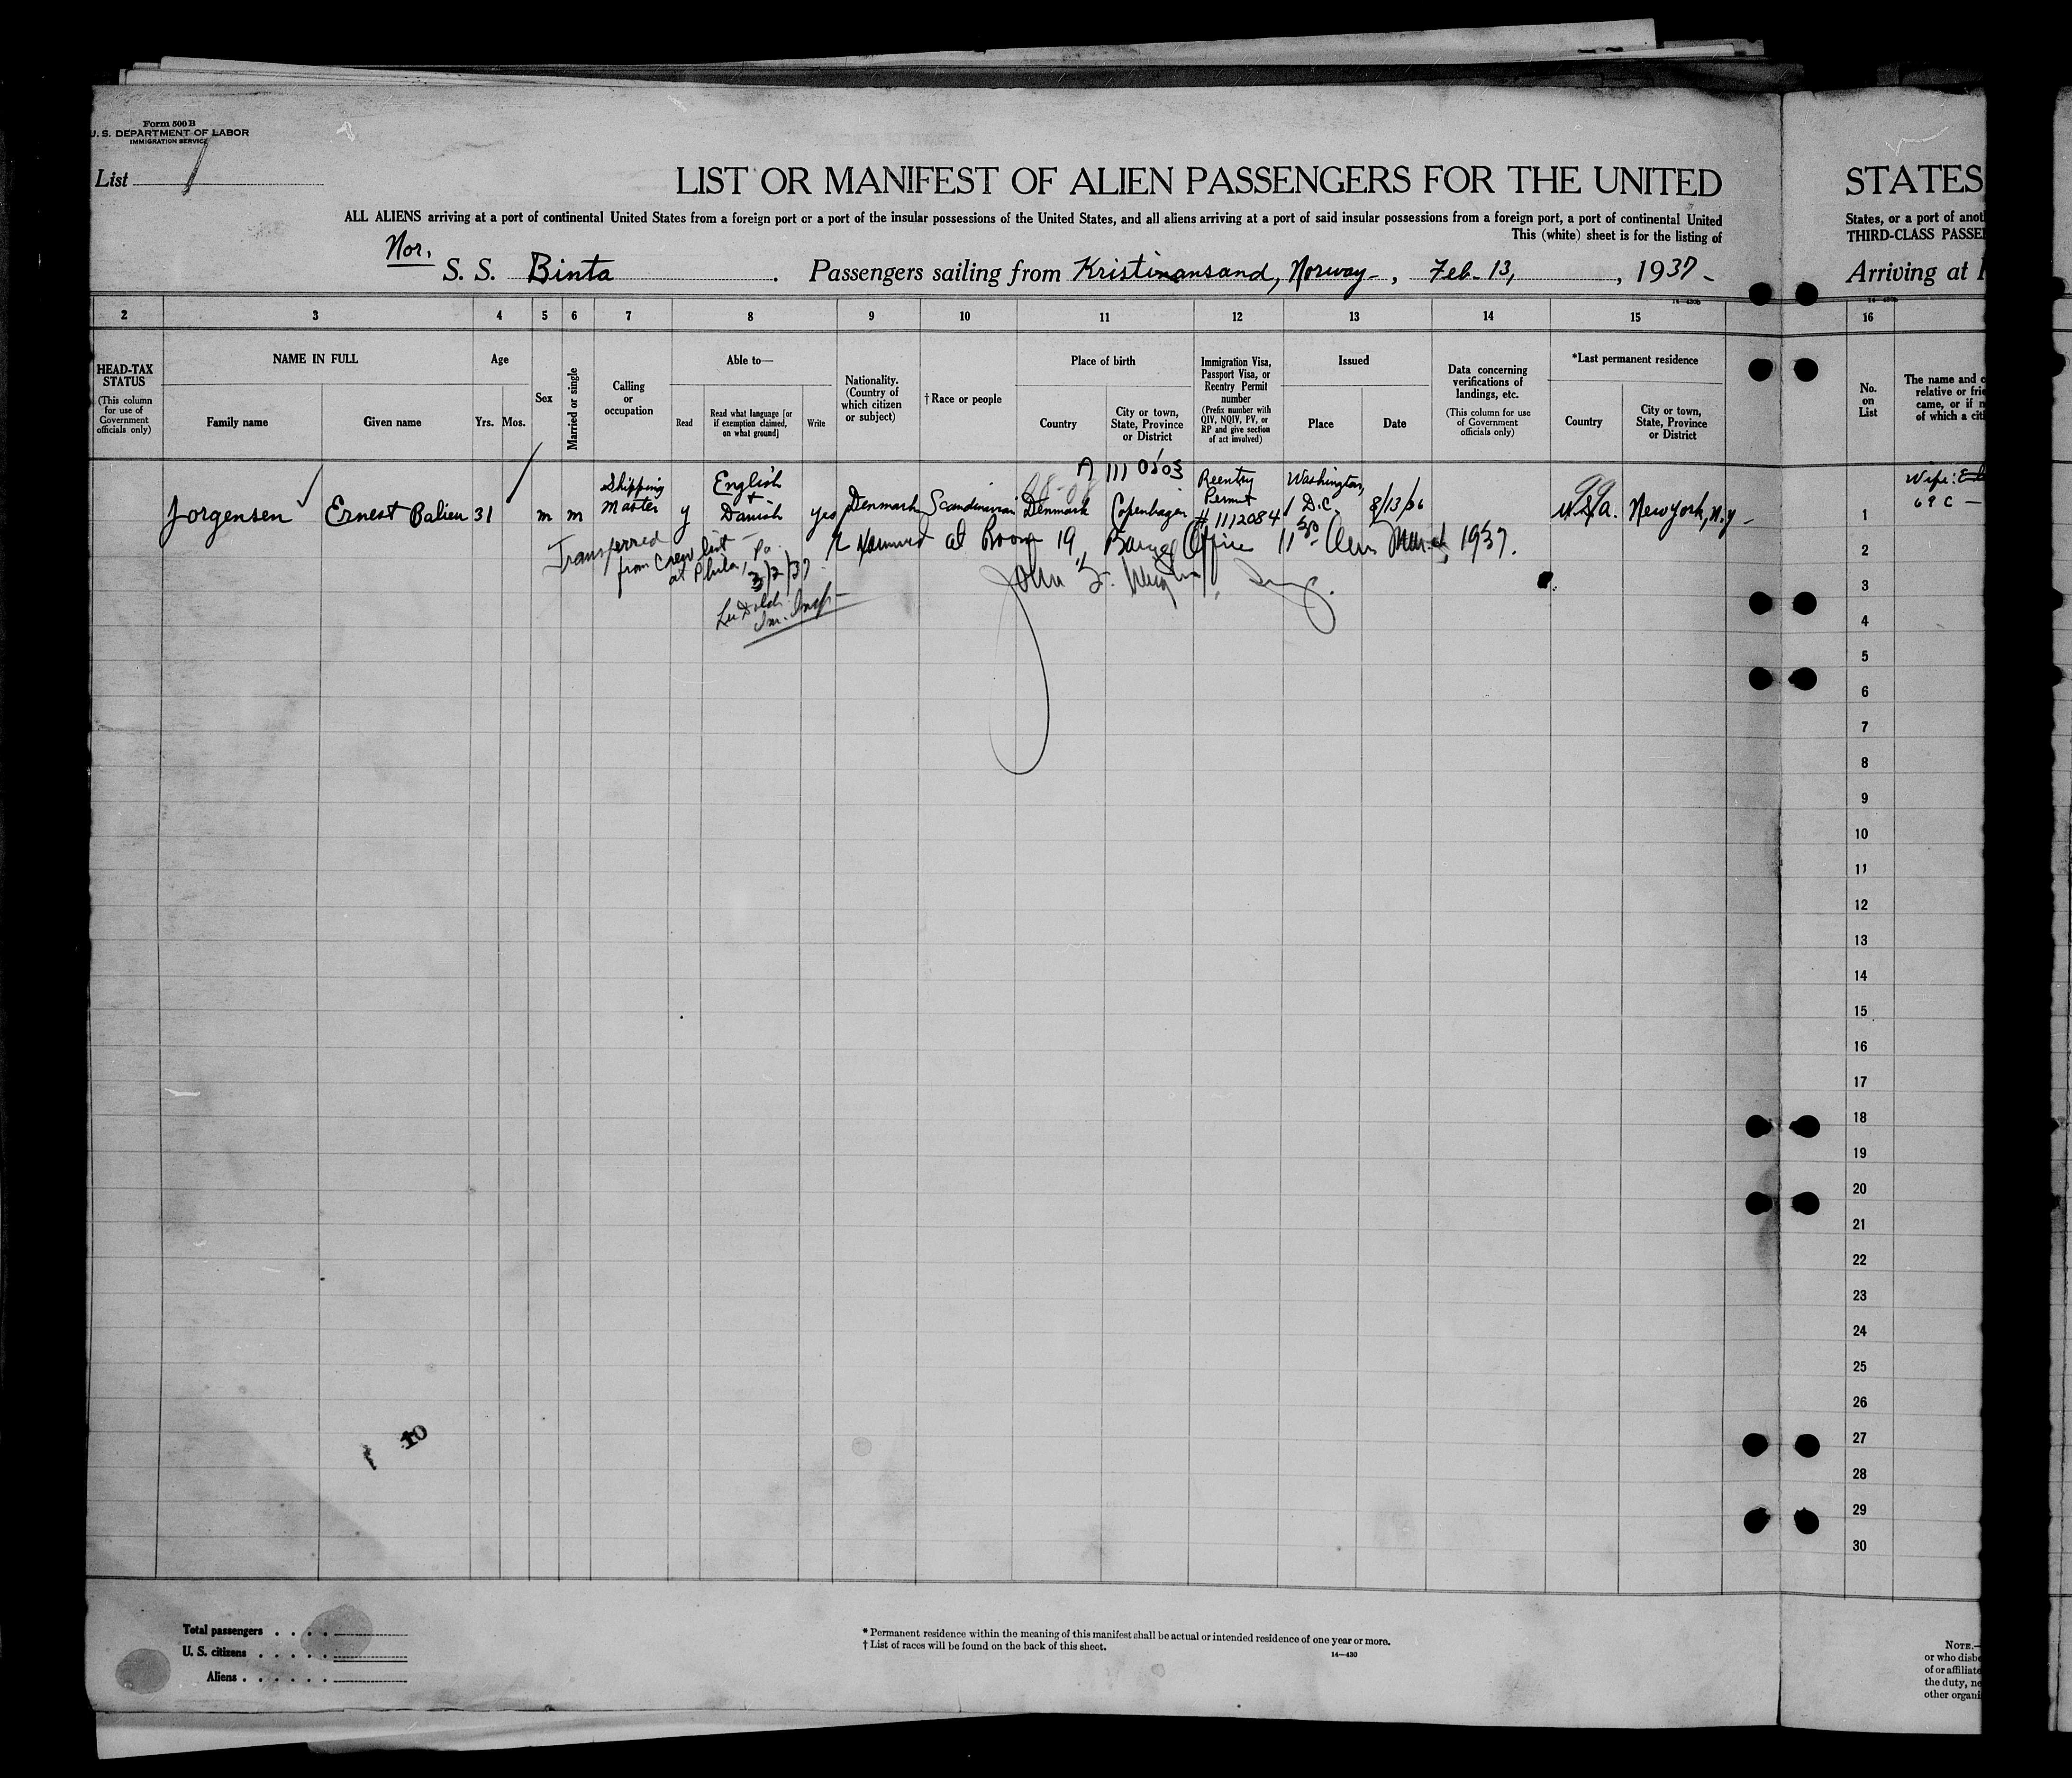 Form 500 B
U. S. DEPARTMENT OF LABOR
IMMIGRATION SERVICE
List 1
LIST OR MANIFEST OF ALIEN PASSENGERS FOR THE UNITED
ALL ALIENS arriving at a port of continental United States from a foreign port or a port of the insular possessions of the United States, and all aliens arriving at a port of said insular possessions from a foreign port, a port of continental United
This (white) sheet is for the listing of
Nor.
S. S. Binta . Passengers sailing from Kristinansand, Norway , Feb. 13, , 1937
STATES
States, or a port of anot
THIRD-CLASS PASSE
Arriving at
14-430b
2 3 4 5 6 7 8 9 10 11 12 13 14 15 16
HEAD-TAX STATUS (This column for use of Government officials only)
NAME IN FULL
Family name Given name
Age
Yrs. Mos.
Sex
Married or single
Calling or occupation
Able to—
Read
Read what language [or if exemption claimed, on what ground]
Write
Nationality. (Country of which citizen or subject)
†Race or people
Place of birth
Country
City or town, State, Province or District
Immigration Visa, Passport Visa, or Reentry Permit number (Prefix number with QIV, NQIV, PV, or RP and give section of act involved)
Issued
Place Date
Data concerning verifications of landings, etc. (This column for use of Government officials only)
*Last permanent residence
Country
City or town, State, Province or District
No. on List
The name and c
relative or frie
came, or if n
of which a citi
A 1110503
Jorgensen Ernest Balieu 31 m m Shipping Master y English + Danish yes Denmark Scandinavian Denmark Copenhagen Reentry Permit # 1112084 Washington, D.C. 8/13/36 U.S.A. New York, N.Y.
Wife:
69 C —
Transferred
from Crew list
at Phila, Pa
3/2/37
Im. Insp.
at Room 19, Barge Office 11 1937.
John
1
2
3
4
5
6
7
8
9
10
11
12
13
14
15
16
17
18
19
20
21
22
23
24
25
26
27
28
29
30
10
Total passengers
U. S. citizens
Aliens
* Permanent residence within the meaning of this manifest shall be actual or intended residence of one year or more.
† List of races will be found on the back of this sheet.
14—430
NOTE.—
or who disbe
of or affiliate
the duty, ne
other organi